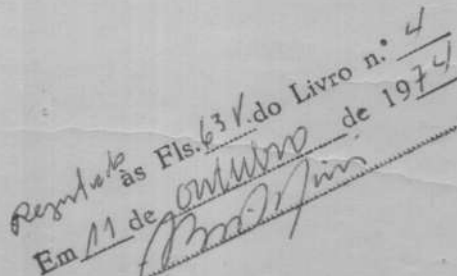 Registado às Fls. 63 V. do Livro n.º 4
Em 11 de outubro de 1974